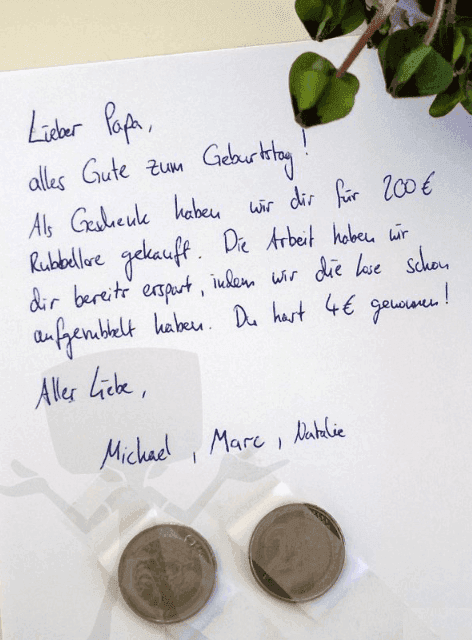 Lieber Papa,
alles Gute zum Geburtstag!
Als Geschenk haben wir dir für 200€
Rubbellose gekauft. Die Arbeit haben wir
dir bereits erspart, indem wir die Lose schon
aufgerubbelt haben. Du hast 4€ gewonnen!
Alles Liebe,
Michael, Marc, Natalie